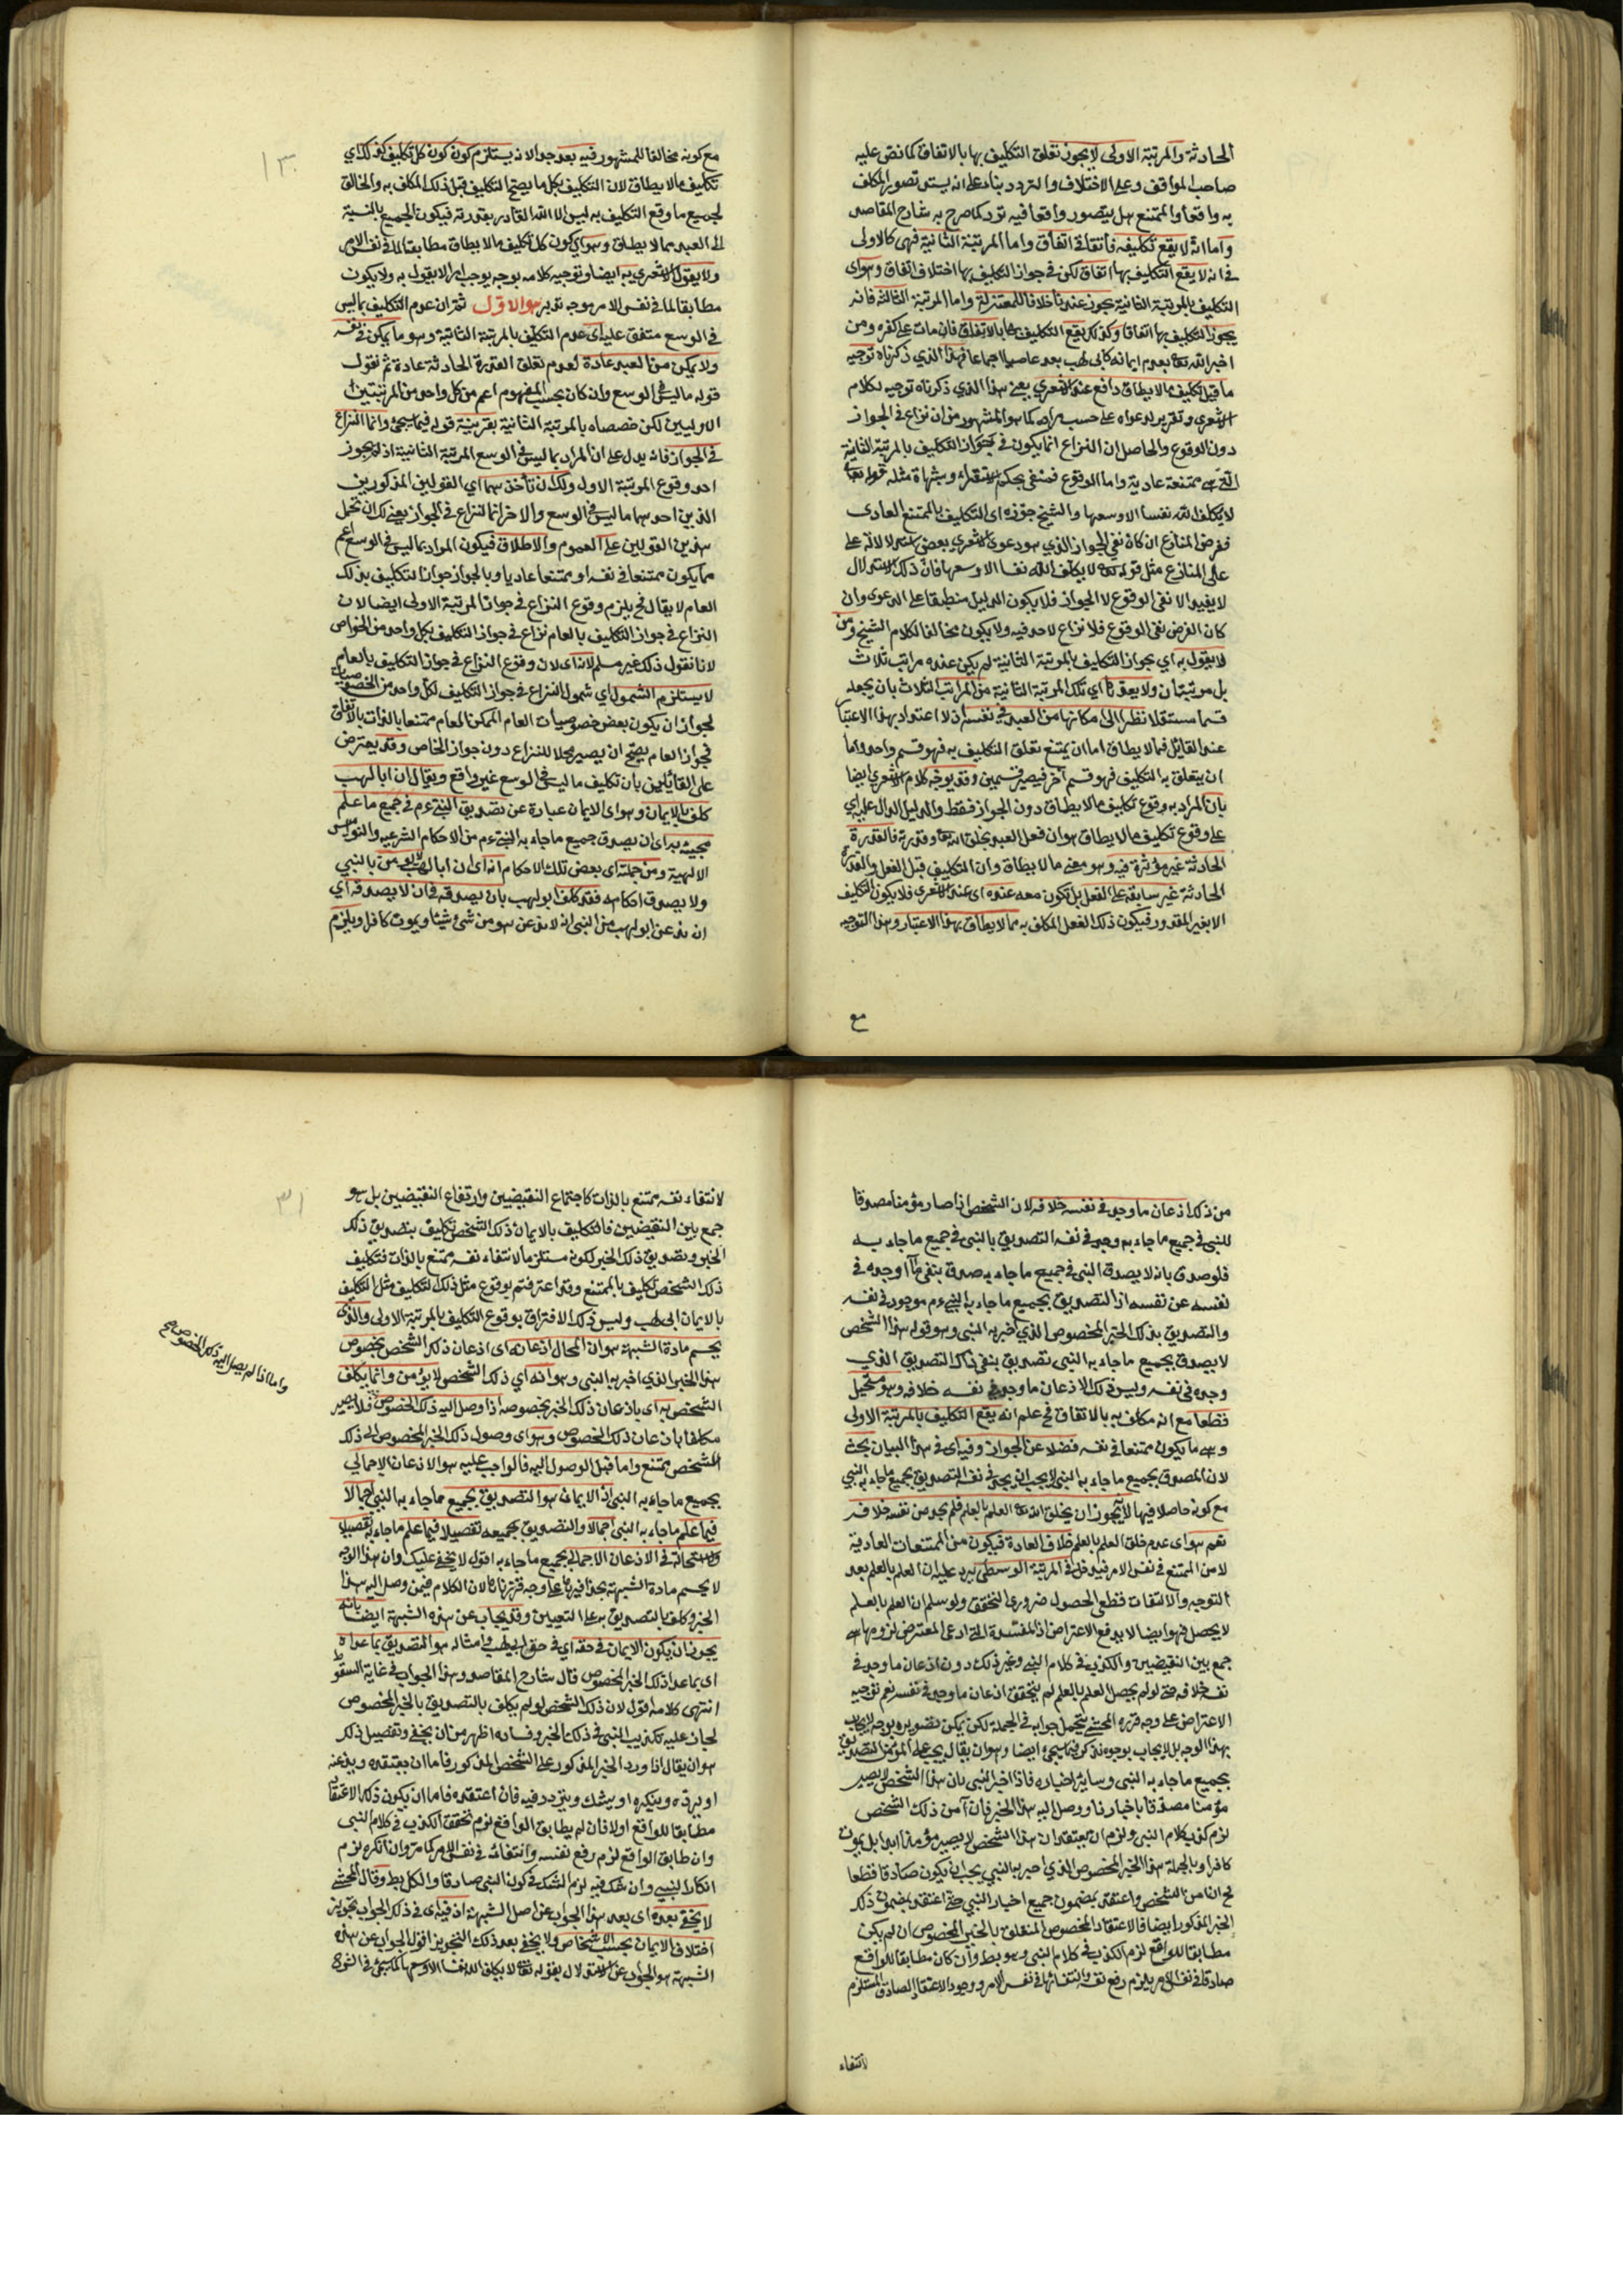 الحادثة والمرتبة الاولى لا يجوز تعلق التكليف بها بالاتفاق كما نص عليه
صاحب المواقف وعلى الاختلاف والتردد بناء على انه يستدعى تصور المكلف
به واقعا والممتنع هل يتصور واقعا فيه تردد كما صرح به شارح المقاصد
واما انه لا يقع تكليفه فاتفاقى اتفاق واما المرتبة الثانية فهى كالاولى
فى انه لا يقع التكليف بها اتفاق لكن فى جواز التكليف بها اختلاف اتفاق وهو اى
التكليف بالمرتبة الثانية يجوز عندنا خلافا للمعتزلة واما المرتبة الثالثة فانه
يجوز التكليف بها اتفاقا وكذلك يقع التكليف بها بالاتفاق فان مات على كفره ومن
اخبر الله تعالى بعدم ايمانه كابى لهب يعد عاصيا اجماعا فهذا الذى ذكرناه توجيه
ما قيل تكليف ما لا يطاق واقع عند الاشعرى يعنى هذا الذى ذكرناه توجيه لكلام
الاشعرى وتقرير لدعواه على حسب مرامه كما هو المشهور من ان نزاع فى الجواز
دون الوقوع والحاصل ان النزاع انما يكون فى جواز التكليف بالمرتبة الثانية
التى هى ممتنعة عادية واما الوقوع فمنفى بحكم الاستقراء وشهادة مثله قوله تعالى
لا يكلف الله نفسا الا وسعها والشيخ جوزه اى التكليف بالممتنع العادى
فغرض المنازع ان كان نفى الجواز الذى هو دعوى الاشعرى بعض استدلالاته على
على المنازع مثل قوله تعالى لا يكلف الله نفسا الا وسعها فان ذلك الاستدلال
لا يفيد الا نفى الوقوع لا الجواز فلا يكون الدليل منطبقا على الدعوى وان
كان الغرض نفى الوقوع فلا نزاع لاحد فيه ولا يكون مخالفا لكلام الشيخ ومن
لا يقول به اى بجواز التكليف بالمرتبة الثانية لم يكن عنده مراتب ثلاث
بل مرتبتان ولا يعد تا اى تلك المرتبة الثانية من المراتب الثلاث بان يجعله
قسما مستقلا نظرا الى امكانها من العبد فى نفسه اذ لا اعتداد بهذا الاعتبار
عند القائل فما لا يطاق اما ان يمتنع تعلق التكليف به فهو قسم واحد واما
ان يتعلق به التكليف فهو قسم آخر فيصير قسمين وقد يوجه كلام الاشعرى ايضا
بان المراد به وقوع تكليف ما لا يطاق دون الجواز فقط والدليل الدال عليه اى
على وقوع تكليف ما لا يطاق هو ان فعل العبد بخلق الله تعالى وقدرته فالقدرة
الحادثة غير مؤثرة فيه وهو معنى ما لا يطاق وان التكليف قبل الفعل والقدرة
الحادثة غير سابقة على الفعل بل تكون معه عنده اى عند الاشعرى فلا يكون التكليف
الا بغير المقدور فيكون ذلك الفعل المكلف به مما لا يطاق بهذا الاعتبار وهذا التوجيه
مع
١٣٠
مع كونه مخالفا للمشهور فيه بعد جوالا نه يستلزم كون كون كل تكليف كذلك اى
تكليف ما لا يطاق لان التكليف بكل ما يصح التكليف قبل ذلك المكلف به والخالق
لجميع ما وقع التكليف به ليس الا الله القادر بقدرته فيكون الجميع بالنسبة
الى العبد مما لا يطاق وهو اى كون كل تكليف ما لا يطاق مطابقا لما فى نفس الامر
ولا يقول الاشعرى به ايضا وتوجيه كلامه بوجه يوجب امرا لا يقول به ولا يكون
مطابقا لما فى نفس الامر موجه تدبر هو الاول ثم ان عدم التكليف بما ليس
فى الوسع متفق عليه اى عدم التكليف بالمرتبة الثانية وهو ما يمكن فى نفسه
ولا يمكن من العبد عادة لعدم تعلق القدرة الحادثة عادة ثم نقول
قوله ما ليس فى الوسع وان كان بحسب المفهوم اعم من كل واحد من المرتبتين
الاوليين لكن خصصناه بالمرتبة الثانية بقرينة قوله فيما سيجئ وانما النزاع
فى الجواز فانه يدل على ان المراد بما ليس فى الوسع المرتبة الثانية اذ لم يجوز
احد وقوع المرتبة الاولى ولك ان تأخذهما اى القولين المذكورين
الذين احدهما ما ليس فى الوسع والاخر انما النزاع فى الجواز يعنى لك ان تحمل
هذين القولين على العموم والاطلاق فيكون المراد بما ليس فى الوسع اعم
مما يكون ممتنعا فى نفسه او ممتنعا عاديا وبالجواز جواز التكليف بذلك
العام لا يقال فح يلزم وقوع النزاع فى جواز المرتبة الاولى ايضا لان
النزاع فى جواز التكليف بالعام نزاع فى جواز التكليف بكل واحد من الخواص
لانا نقول ذلك غير مسلم لانه اى لان وقوع النزاع فى جواز التكليف بالعام
لا يستلزم الشمول اى شمول النزاع فى جواز التكليف لكل واحد من الخصوصيات
لجواز ان يكون بعض خصوصيات العام الممكن العام ممتنعا بالذات بالاتفاق
فجواز العام يصح ان يصير محلا للنزاع دون جواز الخاص وقد يعترض
على القائلين بان تكليف ما ليس فى الوسع غير واقع ويقال ان ابا لهب
كلف بالايمان وهو اى الايمان عبارة عن تصديق النبى عم فى جميع ما علم
مجيئه به اى ان يصدق جميع ما جاء به النبى عم من الاحكام الشرعيه والنواميس
الالهية ومن جملته اى بعض تلك الاحكام انه اى ان ابا لهب لا يؤمن بالنبى
ولا يصدق احكامه فقد كلف ابو لهب بان يصدقه فى ان لا يصدقه اى
ان يذعن ابو لهب من النبى انه لا يذعن هو من شئ شيئا ويموت كافرا ويلزم
من ذلك اذعان ما وجد فى نفسه خلافه لان الشخص اذا صار مؤمنا مصدقا
للنبى فى جميع ما جاء به وجد فى نفسه التصديق بالنبى فى جميع ما جاء به
فلو صدق بانه لا يصدق النبى فى جميع ما جاء به صدق بنفى ما وجده فى
نفسه عن نفسه اذ التصديق بجميع ما جاء به النبى عم موجود فى نفسه
والتصديق بذلك الخبر المخصوص الذى اخبر به النبى وهو قوله هذا الشخص
لا يصدق بجميع ما جاء به النبى تصديق بنفى ذلك التصديق الذى
وجده فى نفسه وليس ذلك الا اذعان ما وجد فى نفسه خلافه وهو مستحيل
قطعا مع انه مكلف به بالاتفاق فح علم انه يقع التكليف بالمرتبة الاولى
وهى ما يكون ممتنعا فى نفسه فضلا عن الجواز وفيه اى فى هذا البيان بحث
لان المصدق بجميع ما جاء به النبى لا يجب ان يجد فى نفسه التصديق بجميع ما جاء به النبى
مع كونه حاصلا فيها لانه يجوز ان يخلق الله تعالى العلم بالعلم فلم يجد من نفسه خلافه
نعم هو اى عدم خلق العلم بالعلم خلاف العادة فيكون من الممتنعات العادية
لا من الممتنع فى نفس الامر فيدخل فى المرتبة الوسطى يرد عليه ان العلم بالعلم بعد
التوجه والالتفات قطعى الحصول ضرورى التحقق ولو سلم ان العلم بالعلم
لا يحصل فهو ايضا لا يدفع الاعتراض اذ المفسدة التى ادعى المعترض لزومها هى
جمع بين النقيضين والكذب فى كلام النبى وغير ذلك دون اذعان ما وجد فى
نفسه خلافه حتى لو لم يحصل العلم بالعلم لم يتحقق اذعان ما وجد فى نفسه نعم توجيه
الاعتراض على وجه قرره المحشى يتحمل جوابه فى الجملة لكن يمكن تصويره بوجه لا يجاب
بهذا الوجه بل لا يجاب بوجوه تذكر فيما سيجئ ايضا وهو ان يقال يجب على المؤمن التصديق
بجميع ما جاء به النبى وسائر اخباره فاذا اخبر النبى بان هذا الشخص لا يصير
مؤمنا مصدقا باخبارنا ووصل اليه هذا الخبر فان آمن ذلك الشخص
لزم كذب كلام النبى ولزم ان يعتقد ان هذا الشخص لا يصير مؤمنا ابدا بل يموت
كافرا وبالجملة هذا الخبر المخصوص الذى اخبر به النبى يجب ان يكون صادقا قطعا
فح ان آمن الشخص واعتقد بمضمون جميع اخبار النبى حتى اعتقد بمضمون ذلك
الخبر المذكور ايضا فالاعتقاد المخصوص المتعلق بالخبر المخصوص ان لم يكن
مطابقا للواقع لزم الكذب فى كلام النبى وهو بط وان كان مطابقا للواقع
صادقا فى نفس الامر يلزم رفع نفسه وانتفائها فى نفس الامر ووجود الاعتقاد الصادق المستلزم
لانتفاء
٣١
لانتفاء نفسه ممتنع بالذات كاجتماع النقيضين وارتفاع النقيضين بل هو
جمع بين النقيضين فالتكليف بالايمان ذلك الشخص تكليف بتصديق ذلك
الخبر وتصديق ذلك الخبر لكونه مستلزما لانتفاء نفسه ممتنع بالذات فتكليف
ذلك الشخص تكليف بالممتنع وقد اعترفتم بوقوع مثل ذلك التكليف مثل التكليف
بالايمان ابى لهب وليس ذلك الا اقتراف بوقوع التكليف بالمرتبة الاولى والذى
يحسم مادة الشبهة هو ان المحال اذعانه اى اذعان ذلك الشخص بخصوص
هذا الخبر الذى اخبر به النبى وهو انه اى ذلك الشخص لا يؤمن وانما يكلف
الشخص به اى باذعان ذلك الخبر بخصوصه اذا وصل اليه ذلك الخصوص فلا يصير
مكلفا باذعان ذلك الخصوص وهو اى وصول ذلك الخبر المخصوص الى ذلك
الشخص ممتنع واما قبل الوصول اليه فالواجب عليه هو الاذعان الاجمالى
بجميع ما جاء به النبى اذ الايمان هو التصديق بجميع ما جاء به النبى اجمالا
فيما علم ما جاء به النبى اجمالا والتصديق بجميعه تفصيلا فيما علم ما جاء به تفصيلا
ولا استحالة فى الاذعان الاجمالى بجميع ما جاء به اقول لا يخفى عليك وان هذا الوجه
لا يحسم مادة الشبهة بحذافيرها على وجه قررناها لان الكلام فيمن وصل اليه هذا
الخبر وكلف بالتصديق به على التعيين وقد يجاب عن هذه الشبهة ايضا بانه
يجوز ان يكون الايمان فى حقه اى فى حق ابى لهب وامثاله هو التصديق بما عداه
اى بما عدا ذلك الخبر المخصوص قال شارح المقاصد وهذا الجواب فى غاية السقوط
انتهى كلامه اقول لان ذلك الشخص لو لم يكلف بالتصديق بالخبر المخصوص
لجاز عليه تكذيب النبى فى ذلك الخبر وفساده اظهر من ان يخفى وتفصيل ذلك
هو ان يقال اذا ورد الخبر المذكور على الشخص المذكور فاما ان يعتقده ويذعنه
او يرده وينكره او يشك ويتردد فيه فان اعتقده فاما ان يكون ذلك الاعتقاد
مطابقا للواقع اولا فان لم يطابق الواقع لزم تحقق الكذب فى كلام النبى
وان طابق الواقع لزم رفع نفسه وانتفائه فى نفس الامر كما مر وان انكره لزم
انكار النبى وان شك فيه لزم الشك فى كون النبى صادقا والكل بط وقال المحشى
لا يخفى بعده اى بعد هذا الجواب عن اصل الشبهة اذ فيه اى فى ذلك الجواب تجويز
اختلاف الايمان بحسب الاشخاص ولا يخفى بعد ذلك التجويز اقول الجواب عن هذه
الشبهة هو الجواب عن الاستدلال بقوله تعالى لا يكلف الله نفسا الا وسعها كما سيجئ فى الشرح
واما اذا لم يصل اليه ذلك الخصوص صح